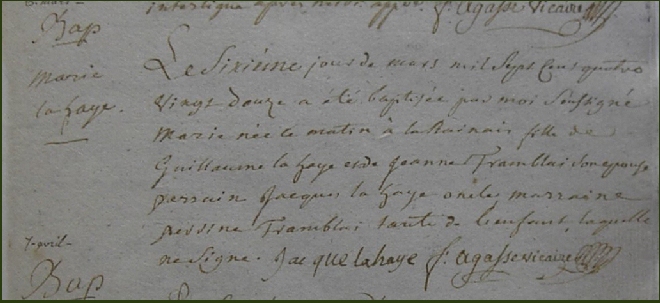 interligne après
f. agasse vicaire
Bap
marie
la haye.
Le Sixième jour de mars mil Sept Cens quatre
vingt douze a été baptisée par moi Soussigné
marie née ce matin à la Rainais fille de
Guillaume la haye et de jeanne Tramblai Son epouse
parrain jacques la haye oncle marraine
Tramblai tante de l'enfant laquelle
ne Signe. Jacque lahaye f. agasse vicaire
7. avril
Bap